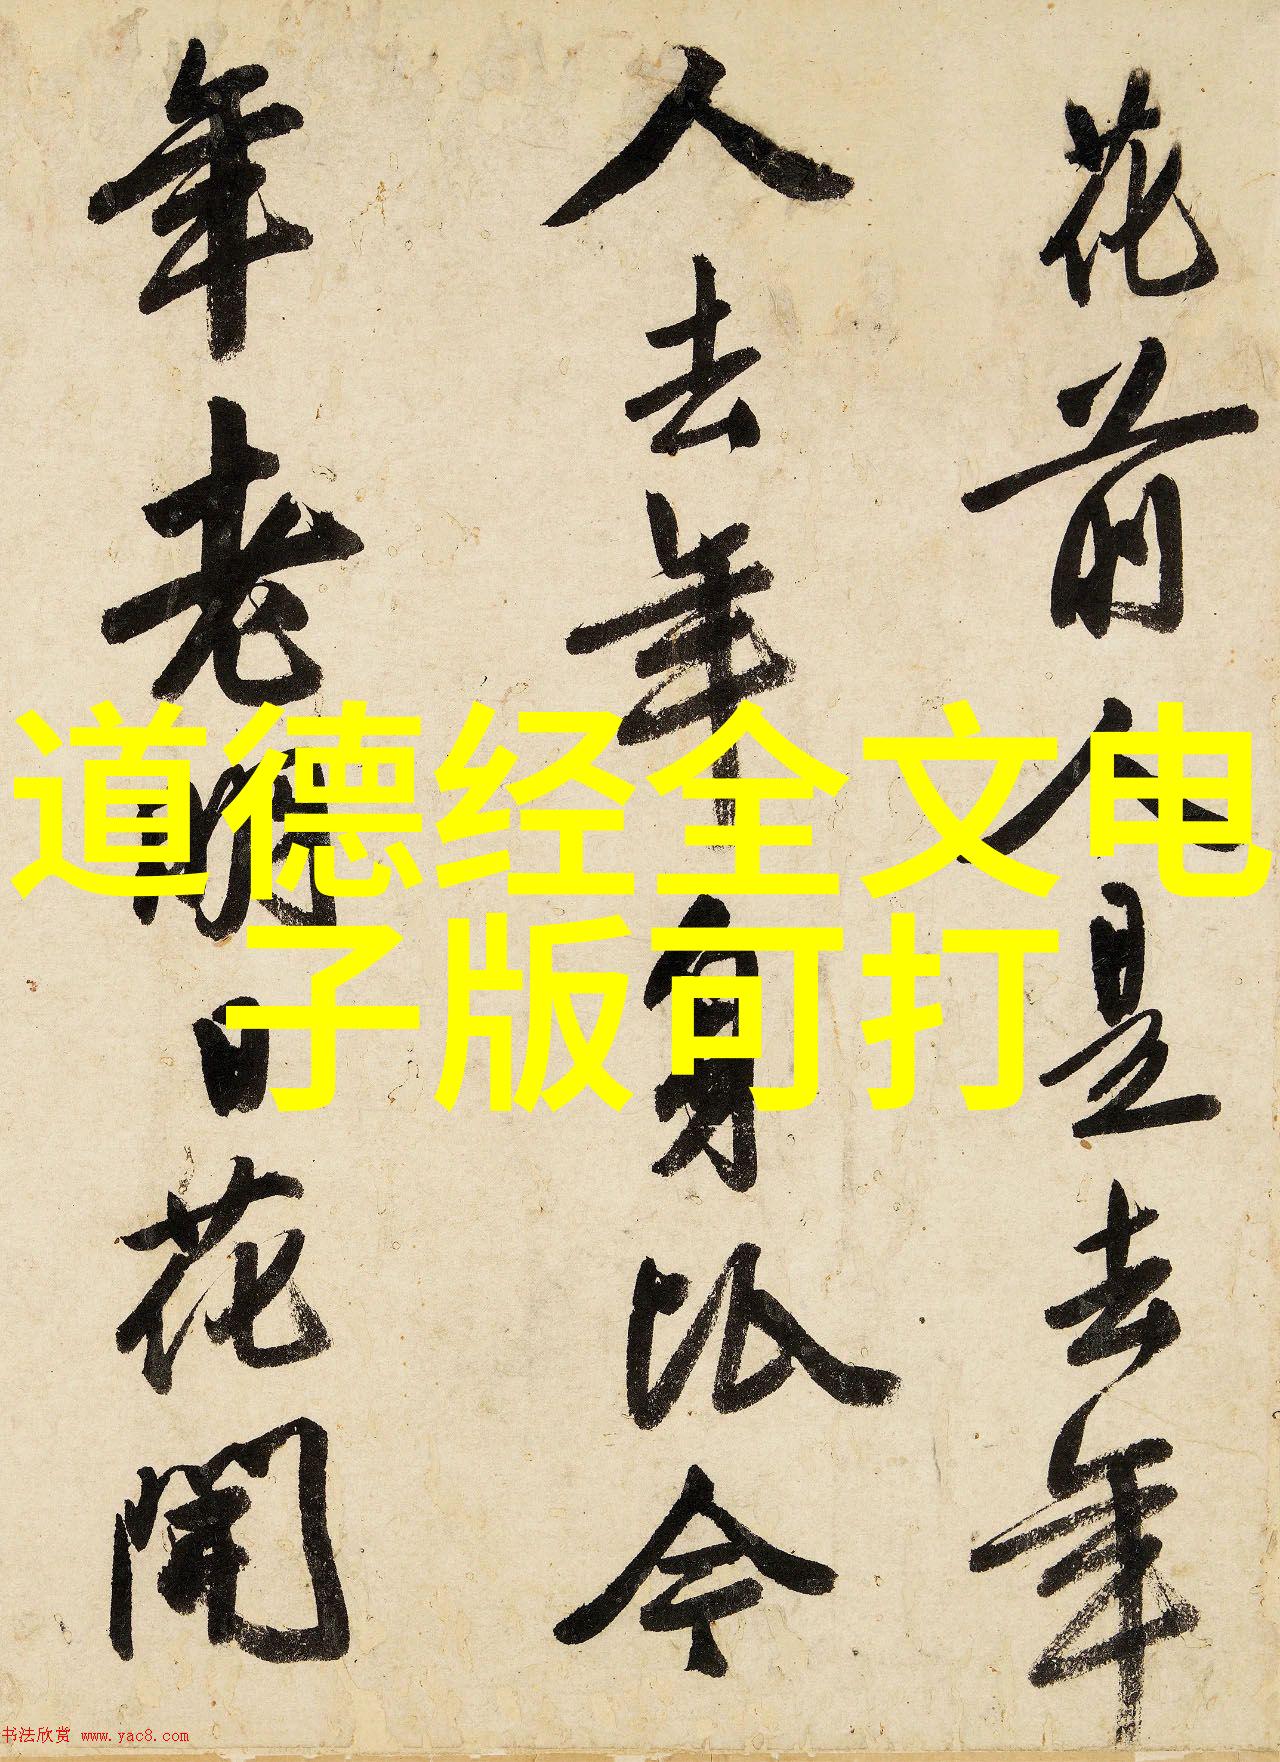 花前人是去年
人去年身比今
年老明日花開
道德经全文电
子版可打
书法欣赏 www.yac8.com